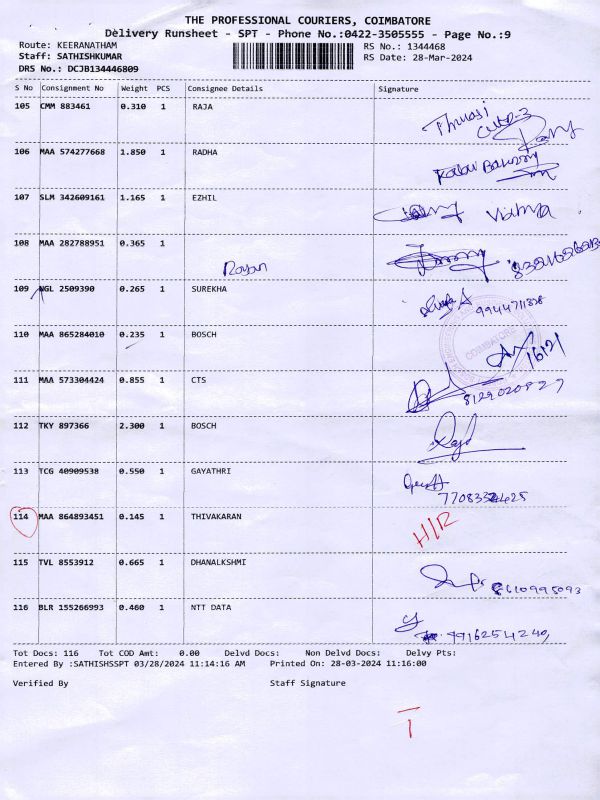 THE PROFESSIONAL COURIERS, COIMBATORE
Delivery Runsheet - SPT - Phone No.:0422-3505555 - Page No.:9
Route: KEERANATHAM RS No.: 1344468
Staff: SATHISHKUMAR RS Date: 28-Mar-2024
DRS No.: DCJB134446809
S No Consignment No Weight PCS Consignee Details Signature
105 CMM 883461 0.310 1 RAJA
Thulasi
106 MAA 574277668 1.850 1 RADHA
107 SLM 342609161 1.165 1 EZHIL
108 MAA 282788951 0.365 1
Rayan
109 NGL 2509390 0.265 1 SUREKHA
COIMBATORE
110 MAA 865284010 0.235 1 BOSCH
16121
111 MAA 573304424 0.855 1 CTS
8129020827
112 TKY 897366 2.300 1 BOSCH
113 TCG 40909538 0.550 1 GAYATHRI
114 MAA 864893451 0.145 1 THIVAKARAN H/R
115 TVL 8553912 0.665 1 DHANALKSHMI
8610995093
116 BLR 155266993 0.460 1 NTT DATA
Tot Docs: 116 Tot COD Amt: 0.00 Delvd Docs: Non Delvd Docs: Delvy Pts:
Entered By :SATHISHSSPT 03/28/2024 11:14:16 AM Printed On: 28-03-2024 11:16:00
Verified By Staff Signature
T